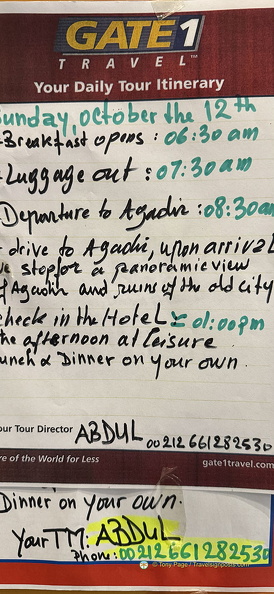 GATE 1
TRAVEL™
Your Daily Tour Itinerary
Sunday, october the 12th
Breakfast opens : 06:30 am
Luggage out : 07:30am
Departure to Agadir :08:30am
drive to Agadir, upon arrival
we stop for a panoramic view
of Agadir and ruins of the old city
check in the Hotel ± 01:00pm
the afternoon at leisure
Lunch & Dinner on your own.
our Tour Director ABDUL 00212 661282530
re of the World for Less
gate1travel.com
Dinner on your own.
Your TM: ABDUL
Phone: 00212661282530
© Tony Page / Travelsignposts.com